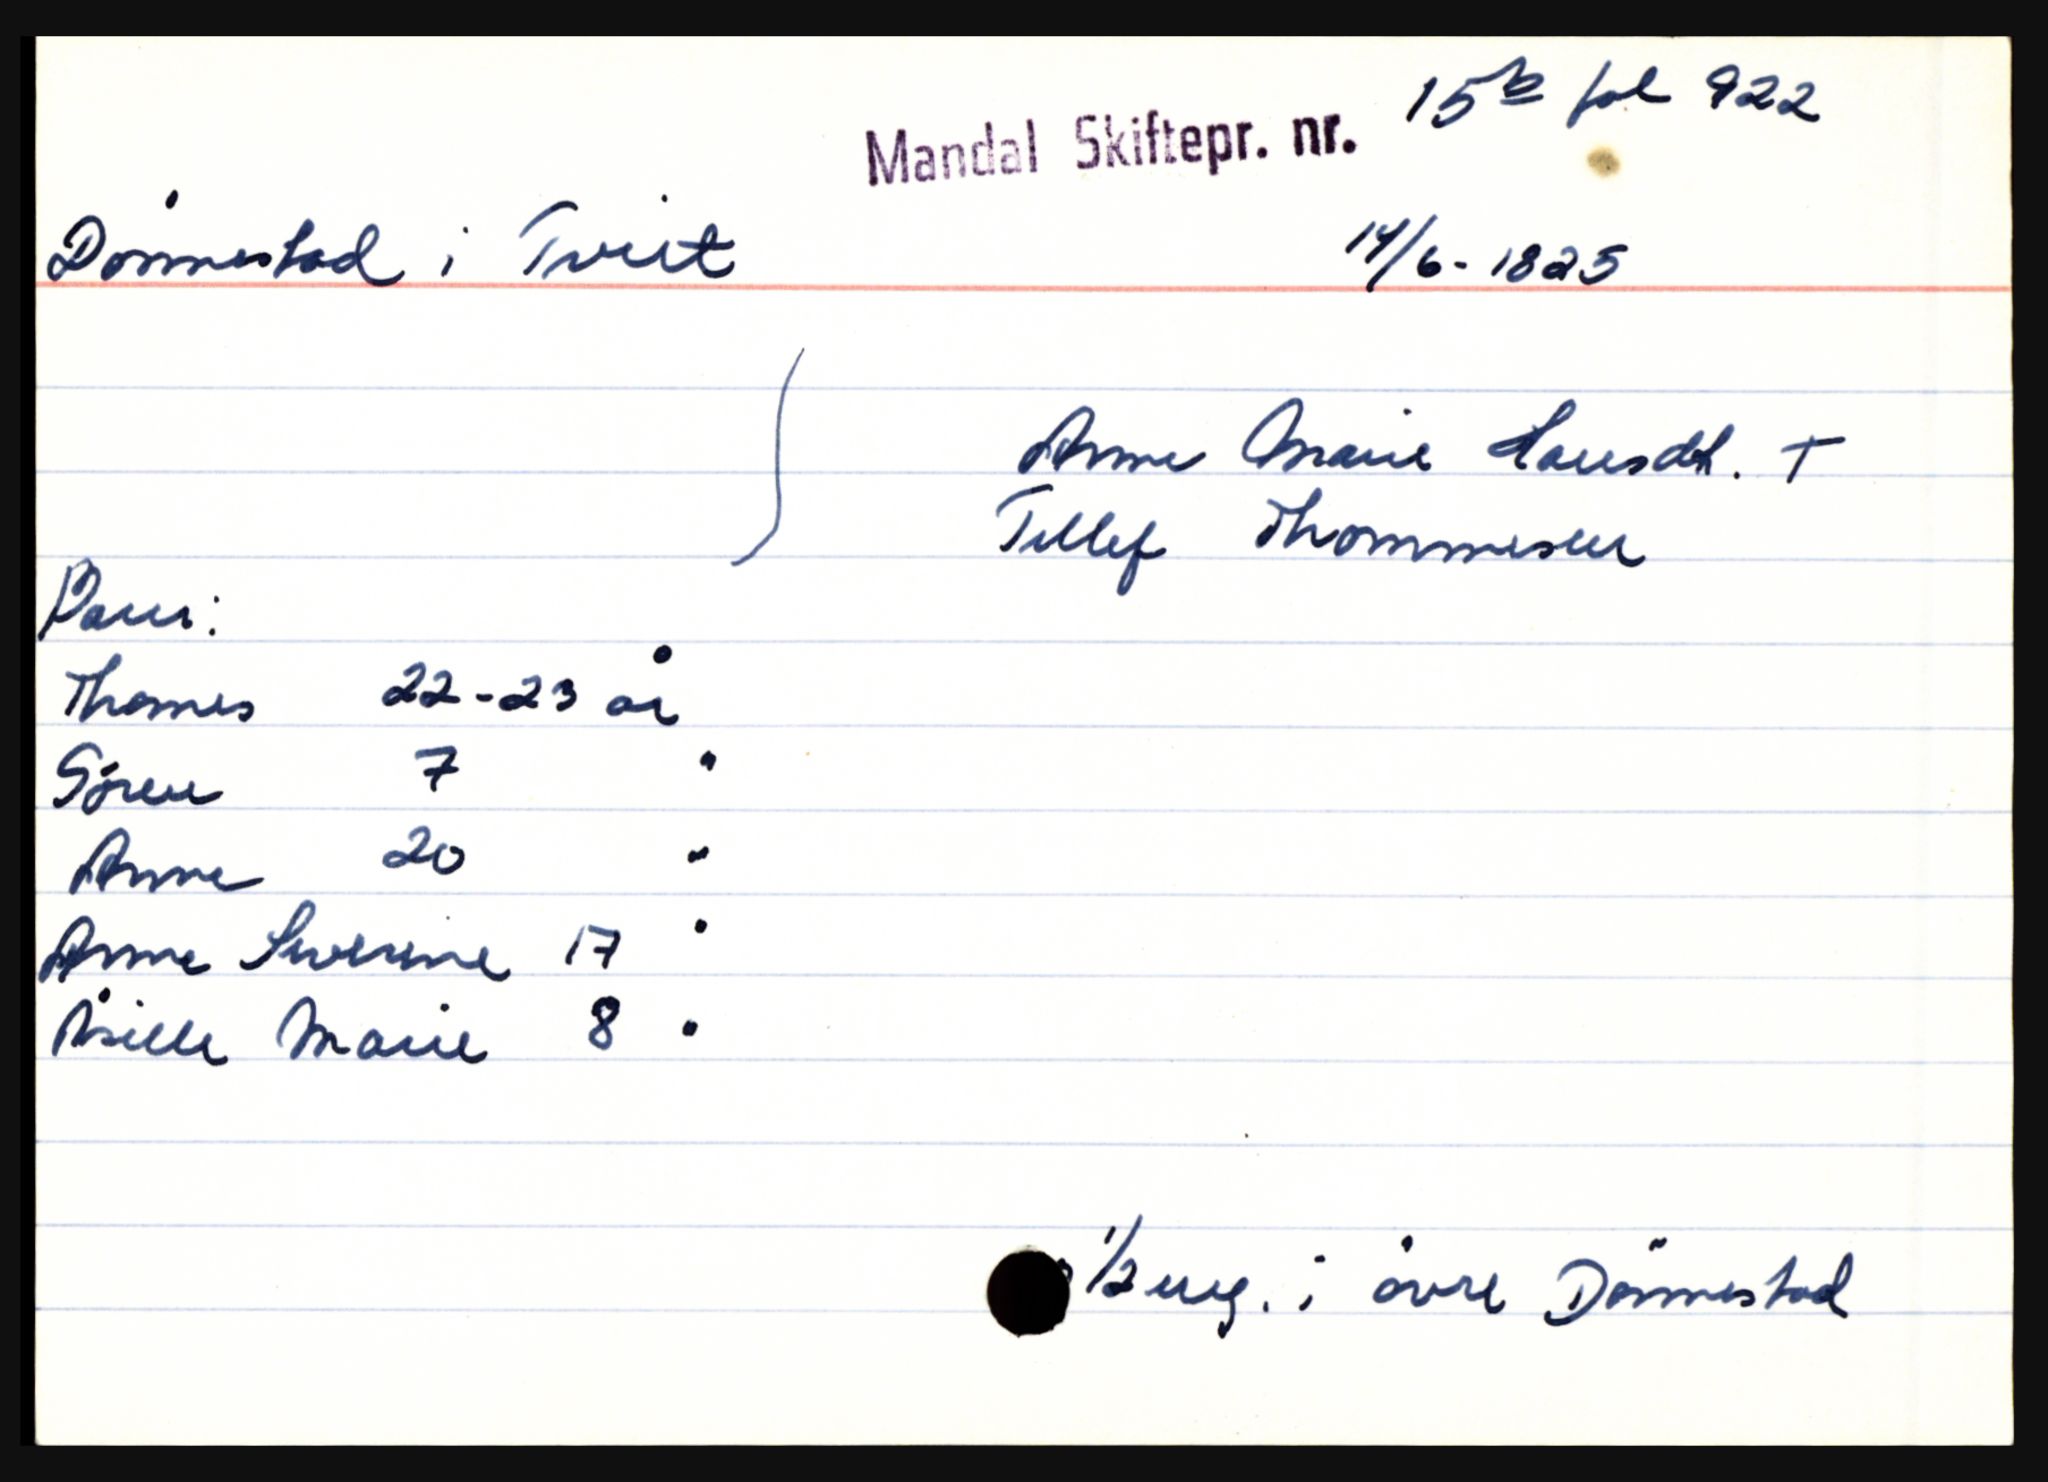 Mandal Skiftepr. nr. 15b fol 922
Dønnestad i Tveit 14/6-1825
Anne Marie Hansdt. +
Tellef Thommesen
Barn:
Thomes 22-23 år
Søren 7 "
Anne 20 "
Anne Severine 17 "
Åsille Marie 8 "
1/2 eng. i øvre Dønnestad